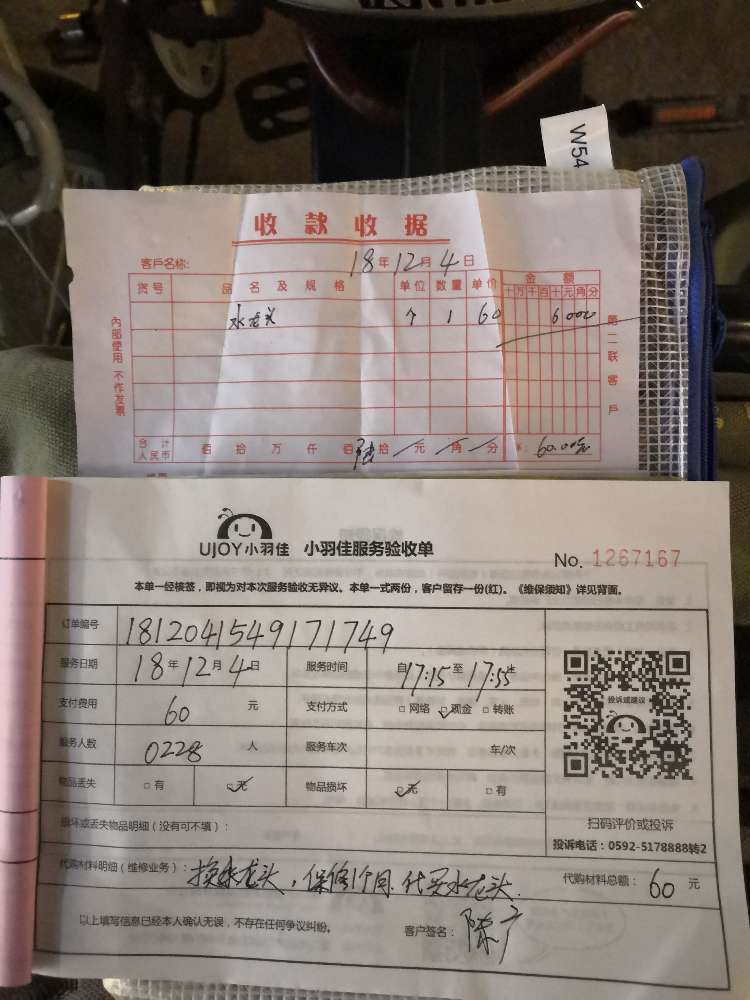 W54
收款收据
客户名称: 18年12月4日
货号 品名及规格 单位 数量 单价 金额
十万千百十元角分
水龙头 个 1 60 6000
内部使用 不作发票
第二联 客户
合计人民币 佰 拾 万 仟 佰 陆拾 元 角 分 ¥: 60.00元
UJOY小羽佳 小羽佳服务验收单
No. 1267167
本单一经核签，即视为对本次服务验收无异议。本单一式两份，客户留存一份(红)。《维保须知》详见背面。
订单编号 1812041549171749
服务日期 18年12月4日 服务时间 自17:15至17:55止
支付费用 60 元 支付方式 □网络 ☑现金 □转账
投诉或建议
服务人数 0228 人 服务车次 车/次
物品丢失 □有 ☑无 物品损坏 ☑无 □有
扫码评价或投诉
损坏或丢失物品明细（没有可不填）:
投诉电话：0592-5178888转2
代购材料明细（维修业务）: 换水龙头，保修1个月.代买水龙头. 代购材料总额: 60 元
以上填写信息已经本人确认无误，不存在任何争议纠纷。 客户签名: